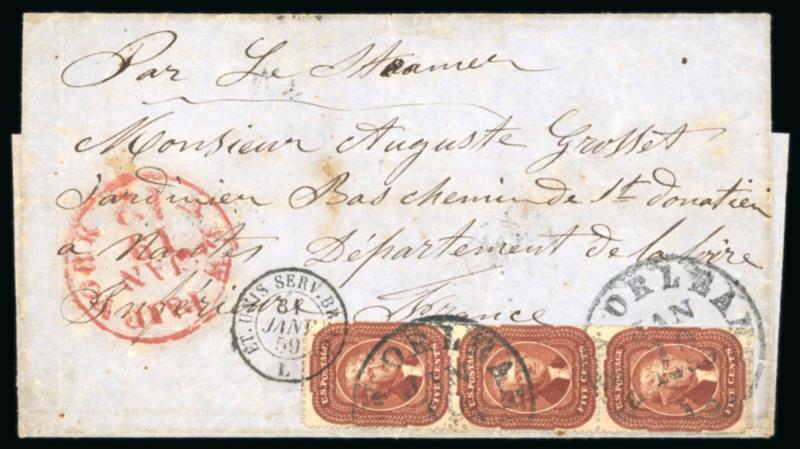 Par Le Steamer
Monsieur Auguste Grosset
Jardinier Bas chemin de St donatien
a Nantes Département de la Loire
Inférieure France
ET. UNIS SERV. BR.
31
JANV
59
L
ORLEA
JAN
ORLEA
U.S. POSTAGE FIVE CENTS
U.S. POSTAGE FIVE CENTS
U.S. POSTAGE FIVE CENTS
JAN